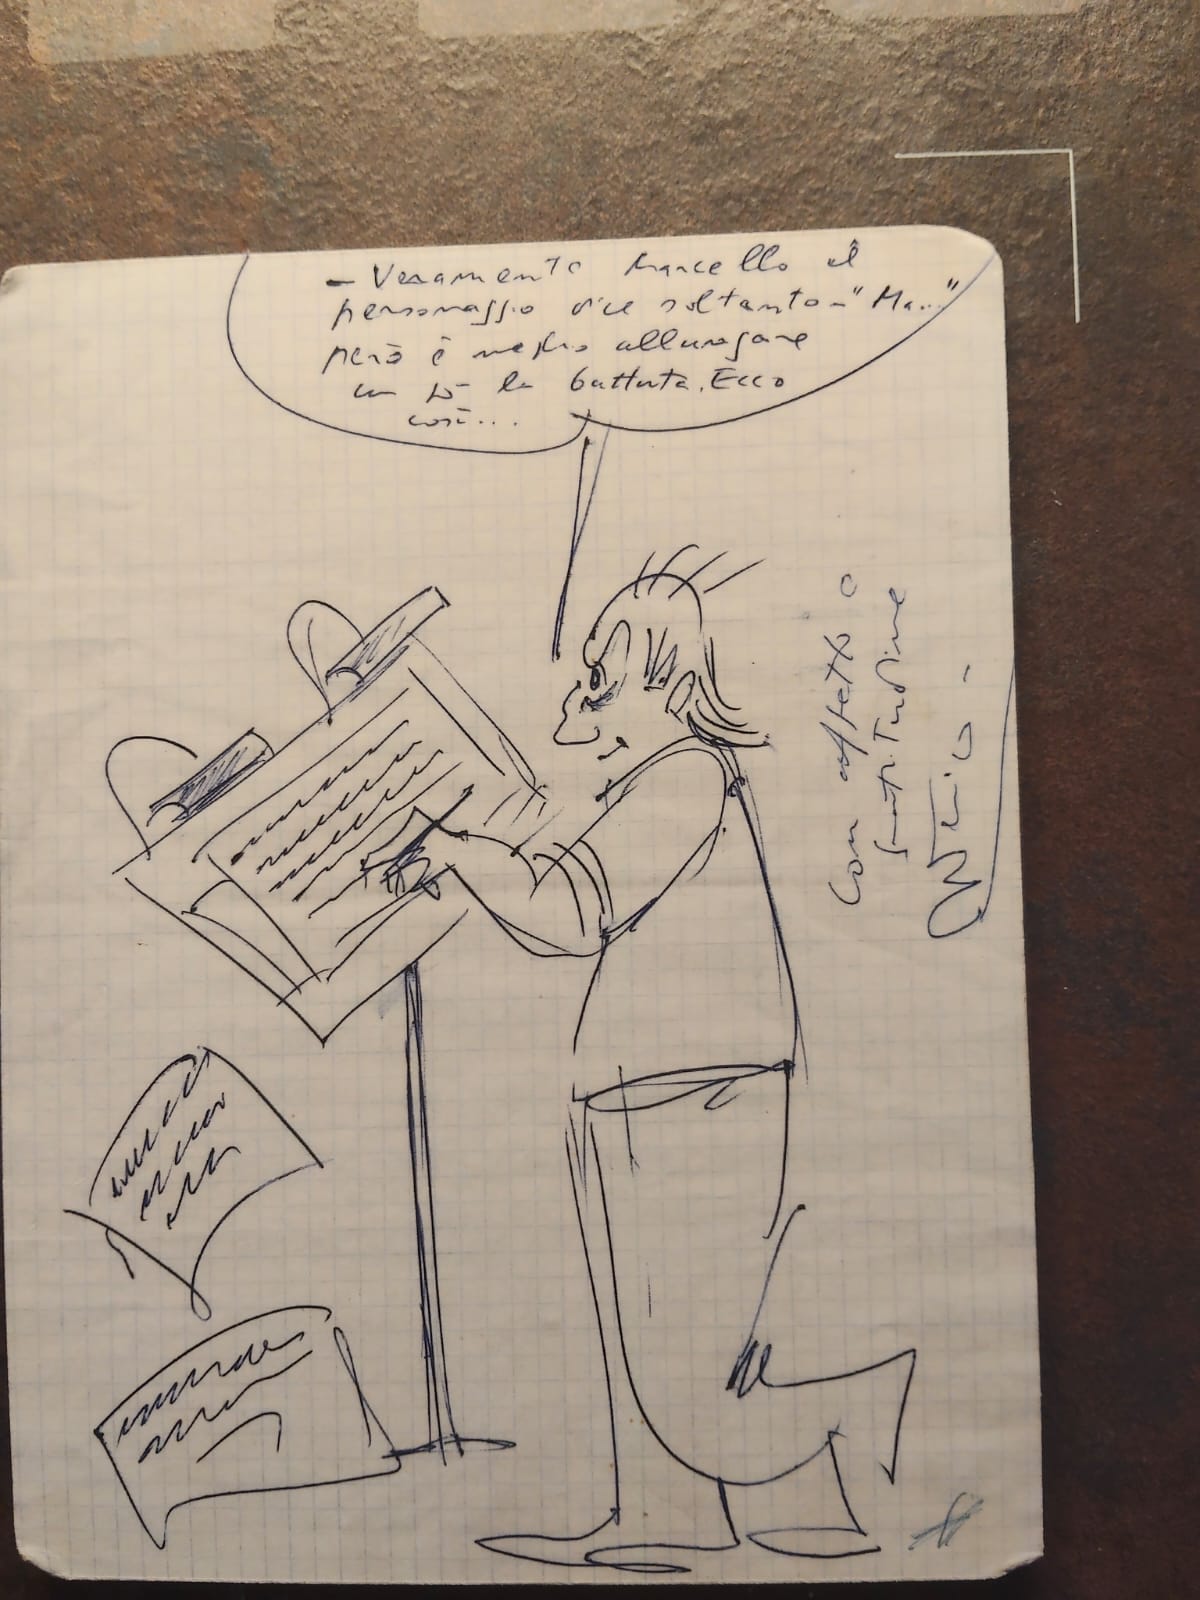 - Veramente Marcello il
personaggio dice soltanto - "Ma..."
però è meglio allungare
un pò la battuta. Ecco
così...
Con affetto e
gratitudine